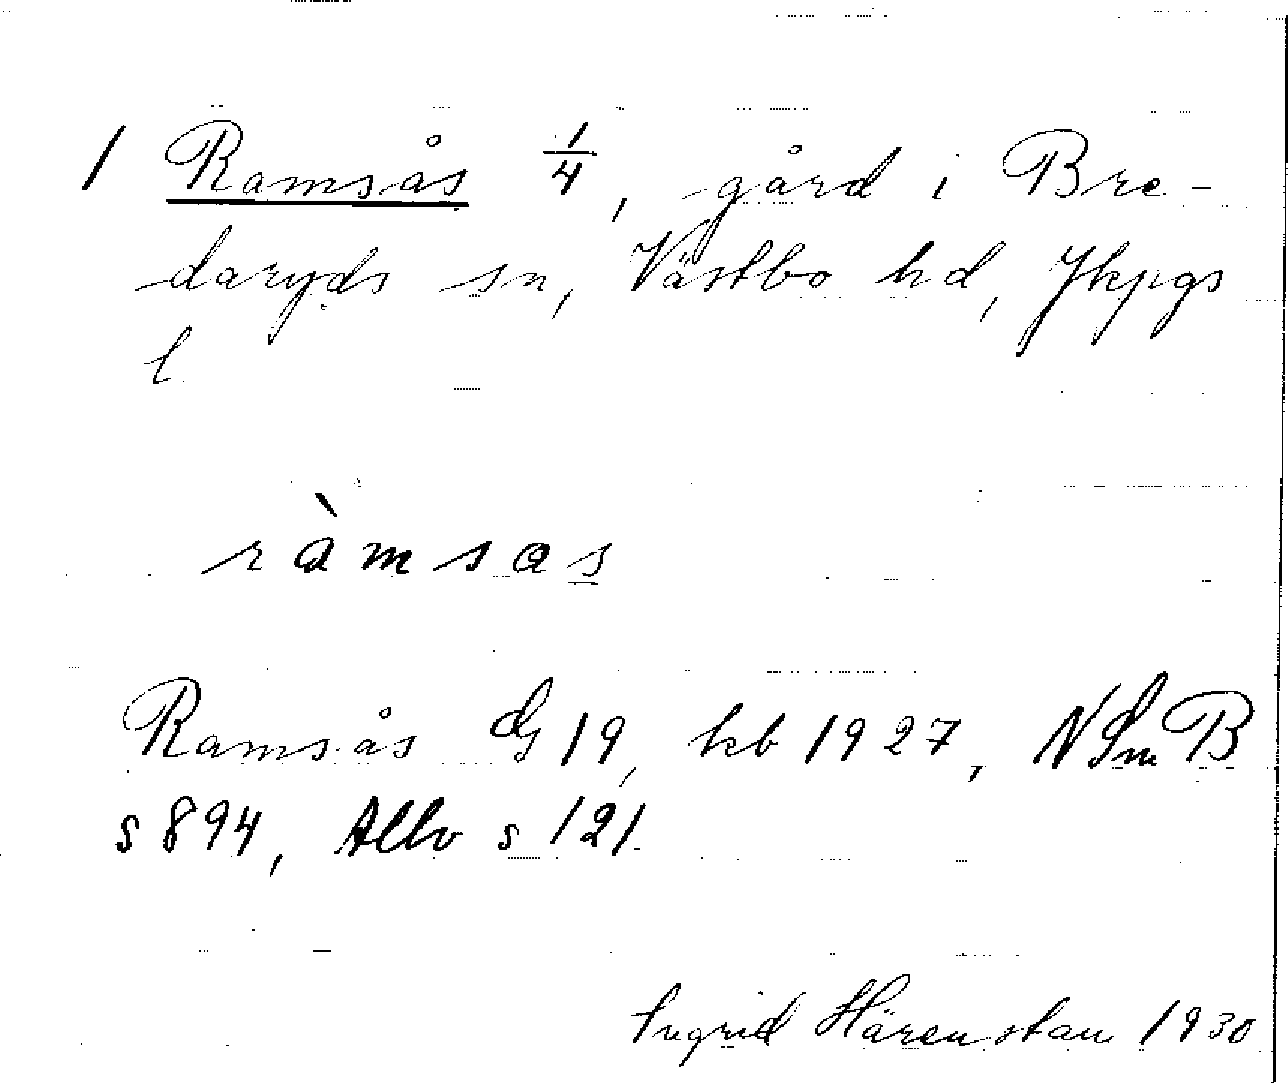 1 Ramsås 1/4, gård i Bre-
daryds sn, Västbo hd, Jkpgs
l
ràmsas
Ramsås G 19, kb 1927, NSmB
s 894, Allvo s 121.
Ingrid Härenstam 1930